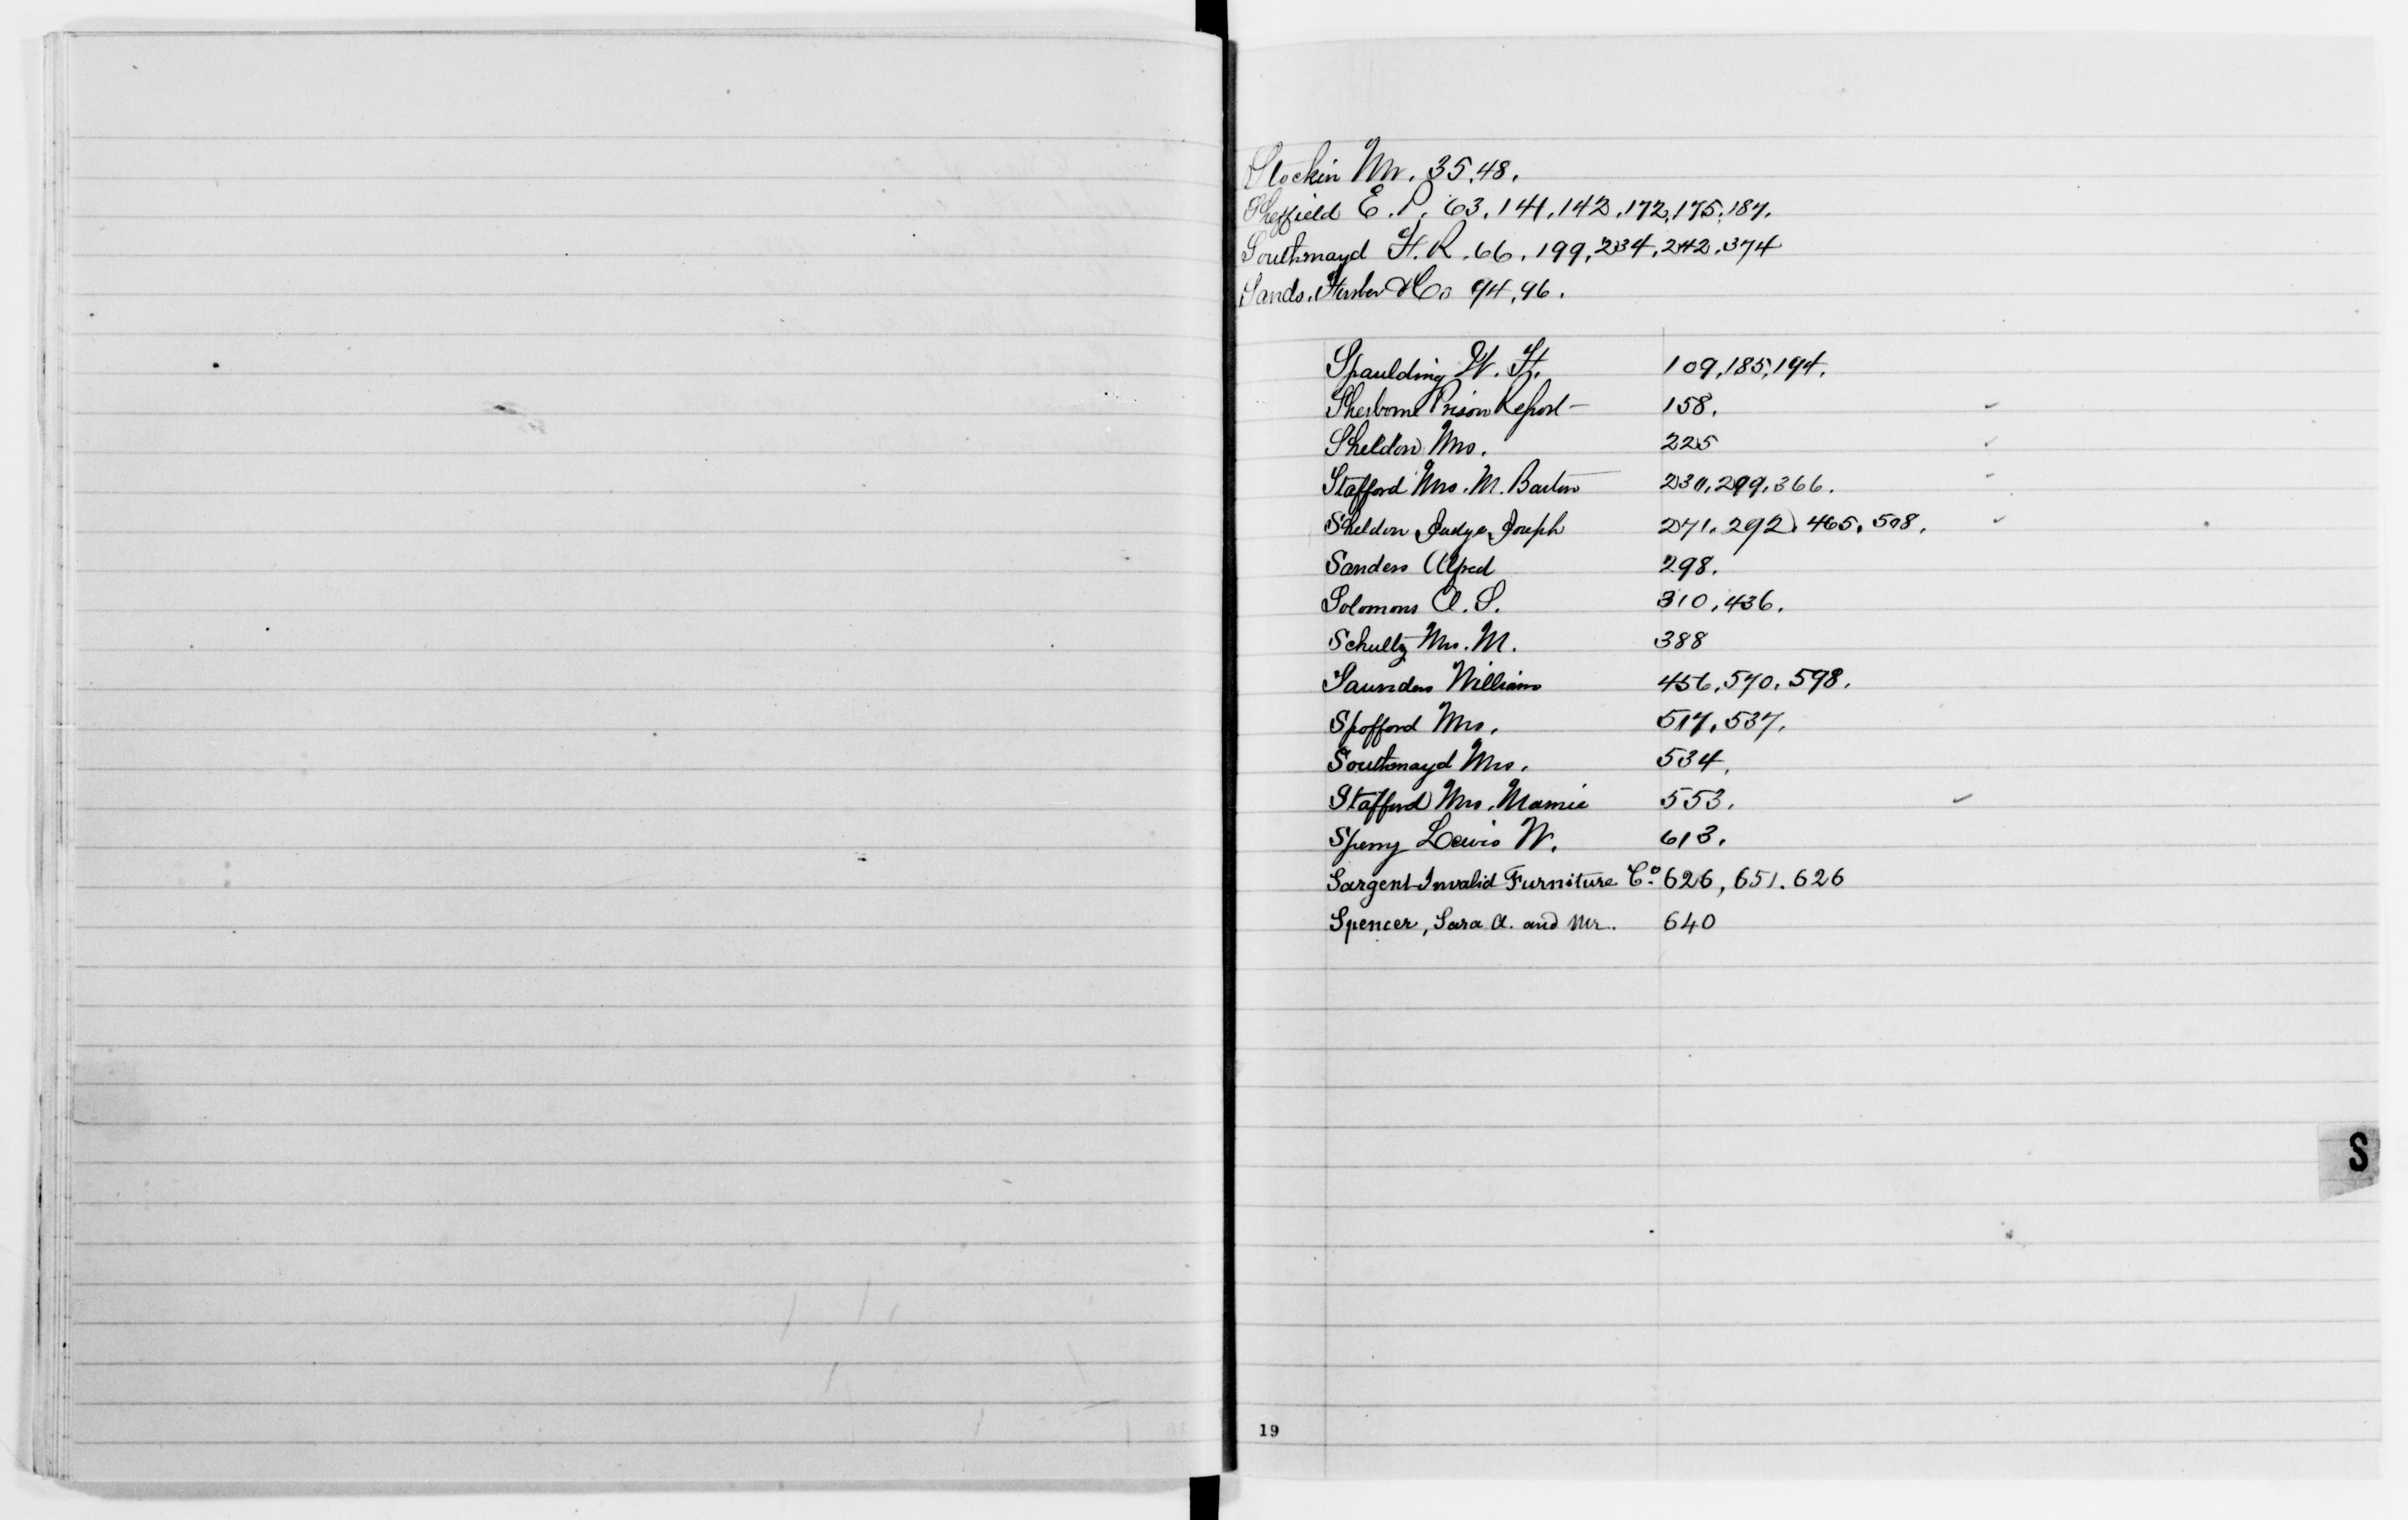 Stockin Mr. 35.48.
Sheffield E.P. 63.141.142.172.175.187.
Southmayd F.R. 66.199.234.242.374
Sands. & Co 94.96.
Spaulding W. F. 109.185.194.
Sherborne Prison Report - 158.
Sheldon Mrs. 225
Stafford Mrs. M. Barton 230.299.366.
Sheldon Judge Joseph 271.292.465.508.
Sanders Alfred 298.
Solomons A.S. 310.436.
Schultz Mrs. M. 388
Saunders William 456.570.598.
Spofford Mrs. 517.537.
Southmayd Mrs. 534.
Stafford Mrs. Mamie 553.
Sperry Lewis W. 613.
Sargent Invalid Furniture Co. 626, 651. 626
Spencer, Sara A. and Mr. 640
S
19